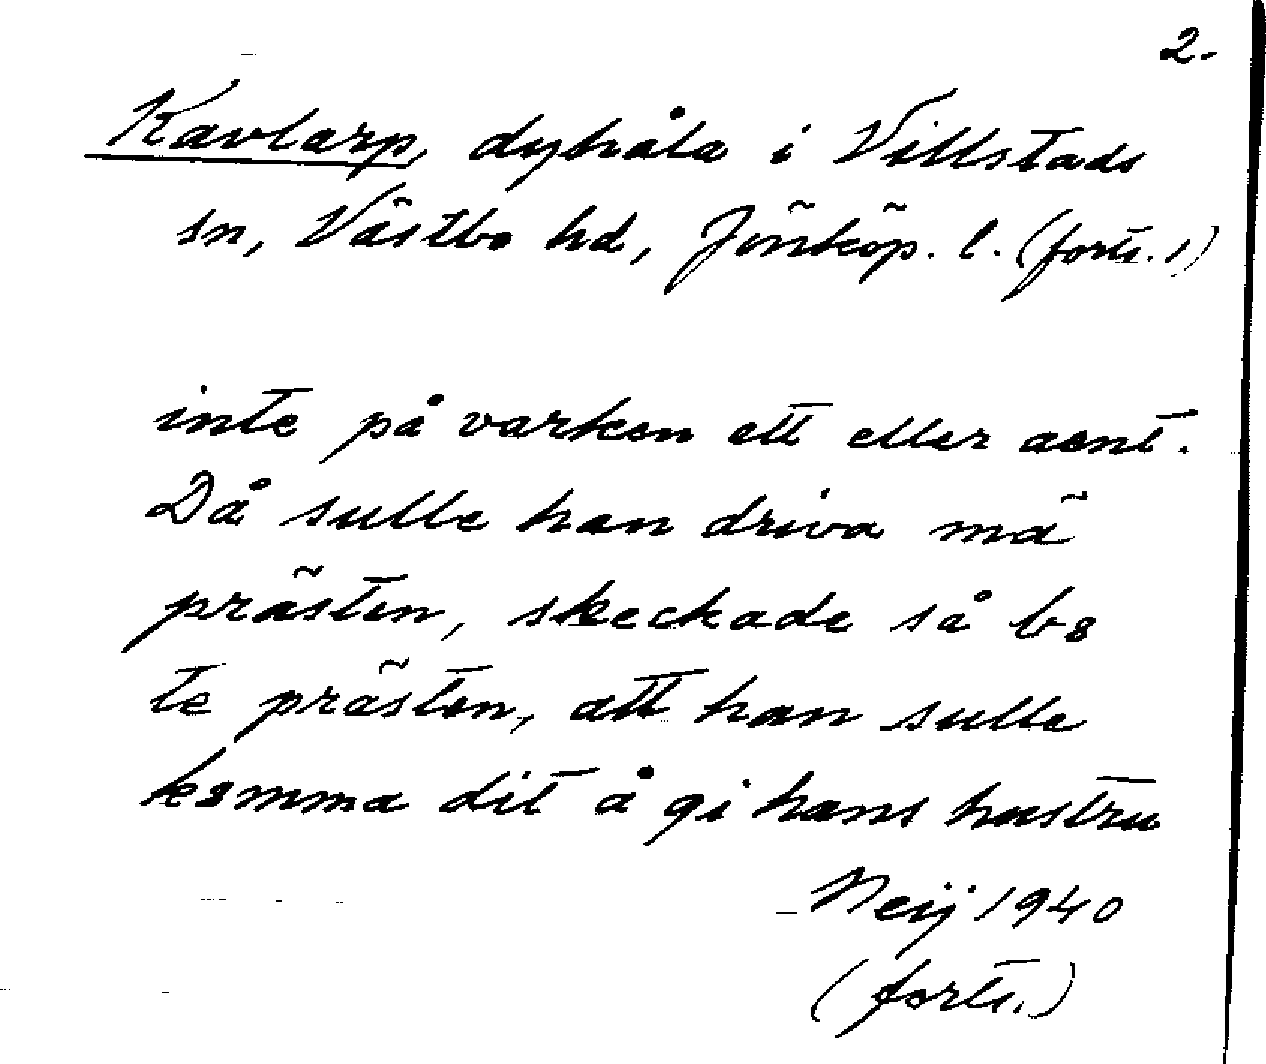 2.
Kavlarp, dyhåla i Villstads
sn, Västbo hd, Jönköp. l. (forts. 1)
inte på varken ett eller aent.
Då sulle han driva mä
prästen, skeckade så bo
te prästen, att han sulle
komma dit å gi hans hustru
Neij 1940
(forts.)